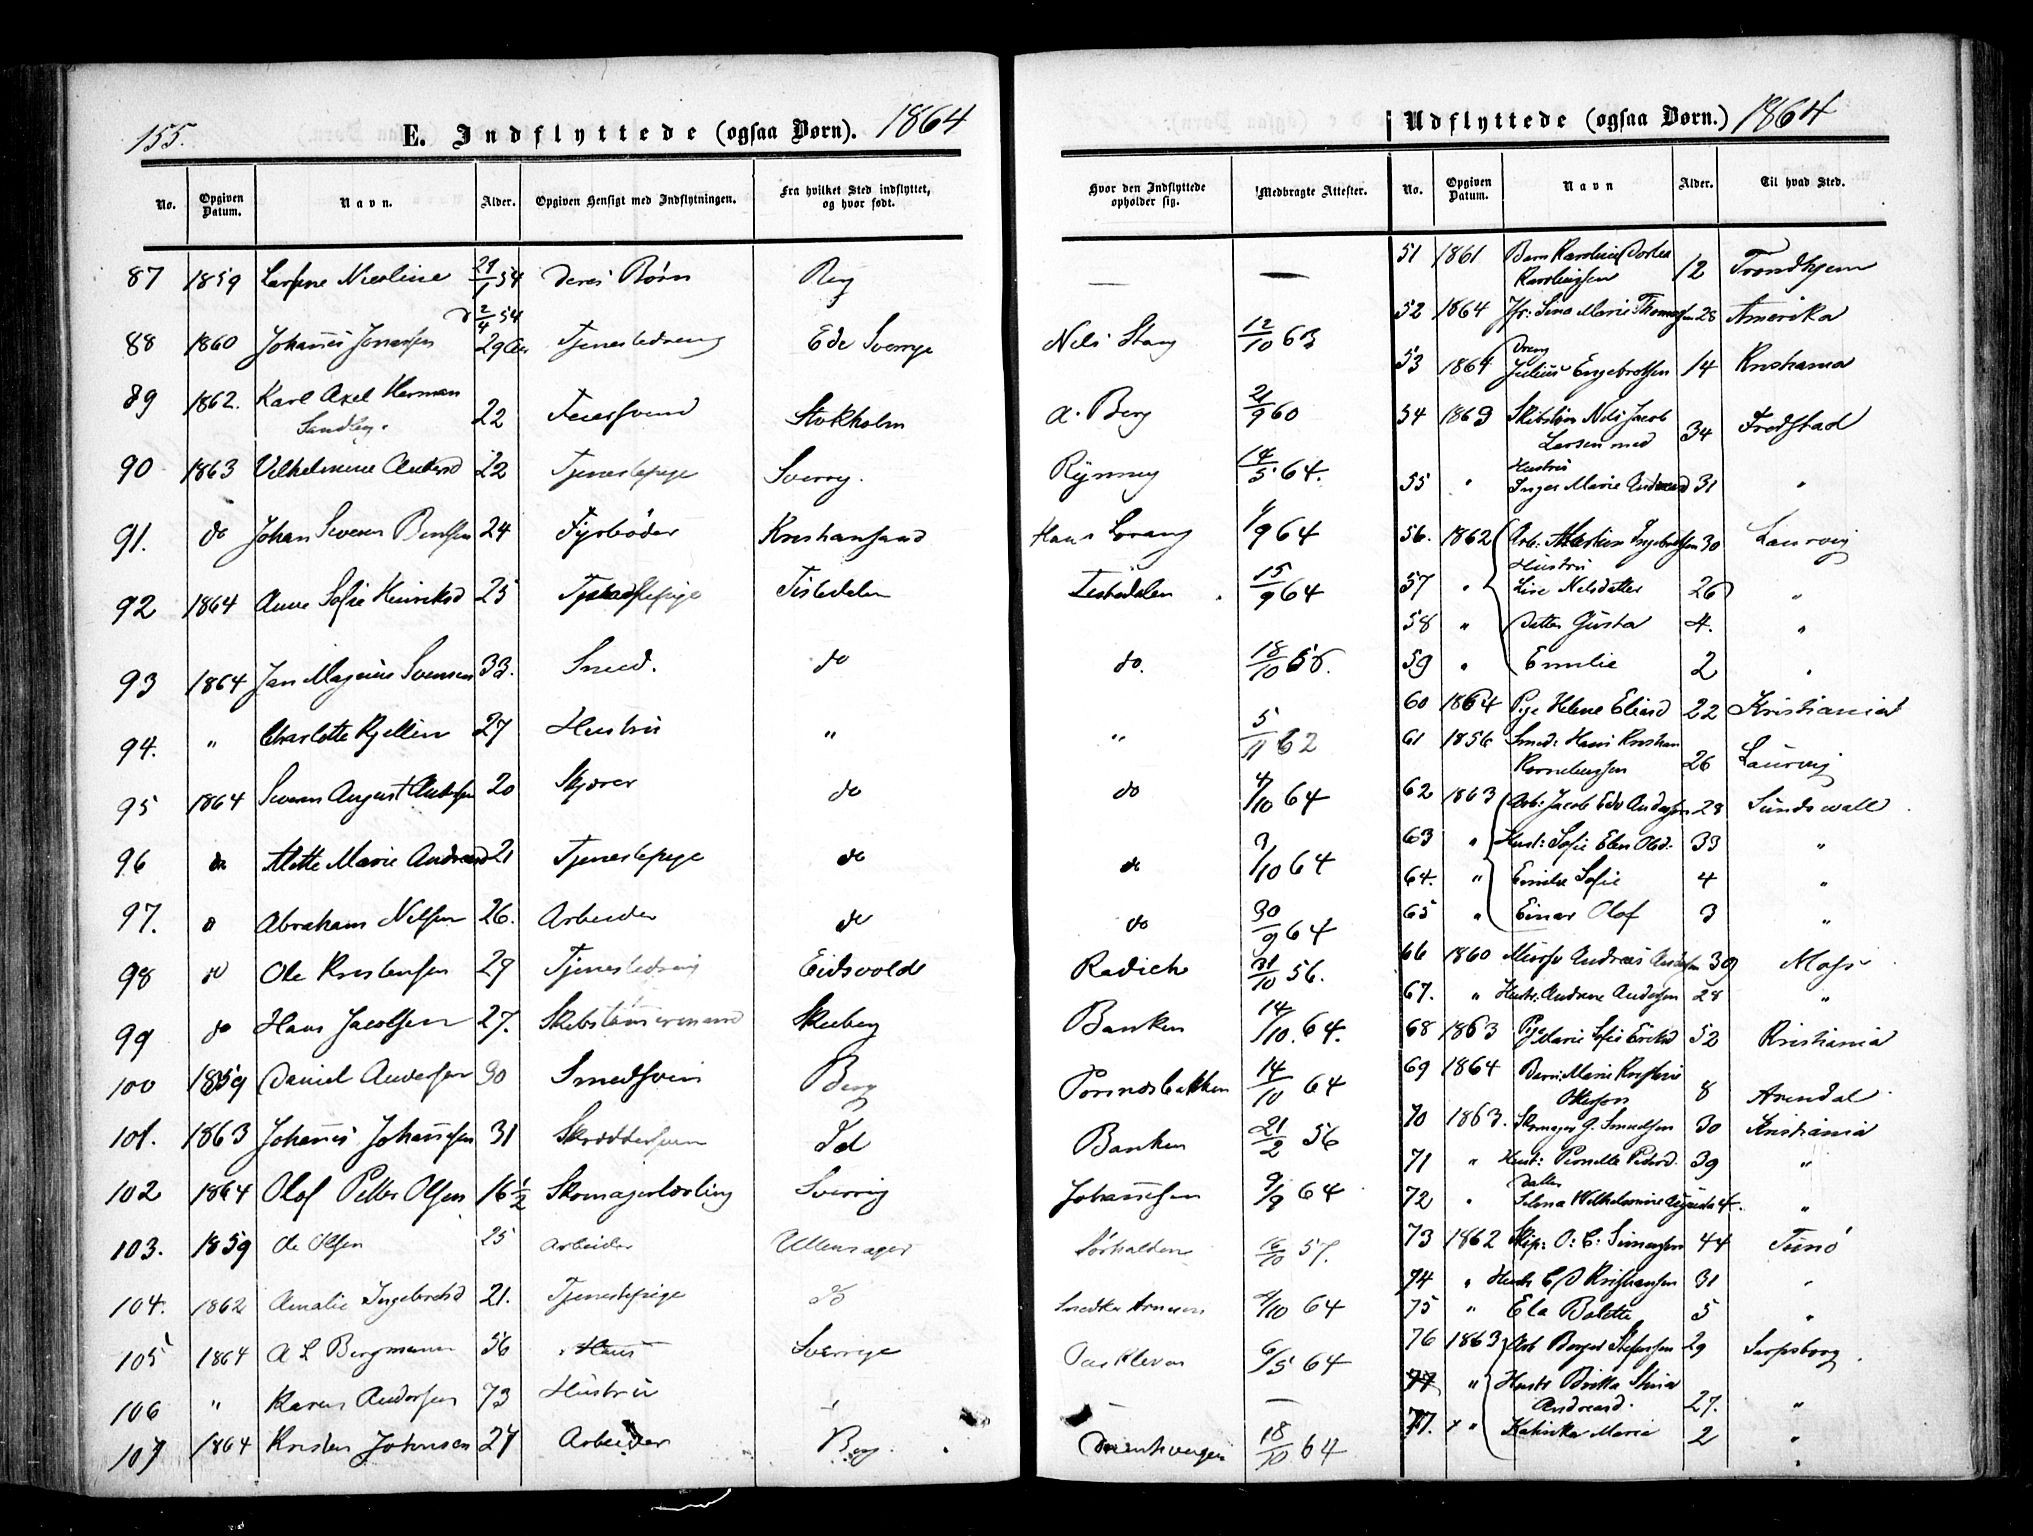 155.
E. Indflyttede (ogsaa Børn). 1864
Udflyttede (ogsaa Børn.) 1864
No. Opgiven Datum. Navn. Alder. Opgiven Hensigt med Indflytningen. Fra hvilket Sted indflyttet, og hvor født. Hvor den Indflyttede opholder sig. Medbragte Attester.
87 1859 Nicoline 29/1 54 deres Børn Berg — —
2/4 54
88 1860 Johannes 29 Aar Tjenestedreng Ede Sverrge Nils Stang 12/10 63
89 1862. Karl Axel Herman 22 Feiersvend Stokholm A. Berg 21/9 60
90 1863 Vilhelmine Andersd 22 Tjenestepige Sverrg. 14/5 64.
91. do Johan Severin 24 Fyrbøder Kristiansand Hans 1/9 64
92 1864 Anne Sofie Henriksd 25 Tistedalen Tistedalen 15/9 64
93 1864 Jan Magnus Svensen 33. Smed. do do. 18/10
94. " Charlotte Kjellin 27 Hustru " " 5/11 62
95 1864 Severin August Andersen 20 Skjærer do do 4/10 64
96 do Mette Marie Andreasd 21 Tjenestepige do do 3/10 64
97. do Abraham Nilsen 26. Arbeider do do 30/9 64
98 do Ole Kristensen 29 Tjenestedreng Eidsvold Radich 31/10 56.
99 do Hans Jacobsen 27. Skibstømmermand Skeeberg Banken 14/10. 64.
100 1859 Daniel Andersen 30 Smedsvein Berg 14/10 64
101. 1863 Johannes Johannesen 31 Skræddersvein Id Banken 21/2 56
102 1864 Olof Petter Olsen 16 1/2 Skomagerlærling Sverrig Johannesen 9/9 64
103. 1859 Ole Olsen 25 Arbeider Ullensager Sørhalden 16/10 57.
104. 1862 Amalie Ingebretsd 21. Tjenestepige do 64
105 1864 A L Bergmann 56 Sverrge 6/5 64
106 " Karen Andersen 73 Hustru —
107 1864 Kristen Johnsen 27 Arbeider Berg. 18/10 64
No. Opgiven Datum. Navn Alder. Til hvad Sted.
51 1861 Barn Karoline Dorlea
12 Trondhjem
52 1864 Jfr: Sina Marie 28 Amerika
Dreng
53 1864 Julius Engebretsen 14 Kristiania
54 1863 Nils Jacob
Larsen med 34 Fredstad
Hustru
55 " Inger Marie Andreasd 31 "
56. 1862 Arb: Ingebretsen 30 Laurvig
Hustru
57 " Lise Nilsdatter 26 "
58 " Datter Gusta 4. "
59 " Emilie 2 "
60 1864 Pige Helene Eliasd 22 Kristiania
61 1856 Smed: Hans Kristian
26 Laurvig
62 1863 Arb: Jacob Edv Andersen 28 Sundswall
63 " Hust: Sofie Elen Olsd. 33 "
64. " Emilie Sofie 4 "
65 " Einar Olof 3 "
66 1860 Andreas Andersen 39 Moss
67. " Hustr. Andrine Andersen 28 "
68 1863 Pige Marie Sofie Eriksd 52 Kristiania
69 1864 Barn: Marie
8 Arendal
70 1863. Skomager G. Smedsen 30 Kristiania
71 " Hust: Pernille Pedersd. 39 "
Datter
72 " Wilhelmine 4. "
73 1862 Skip: O: C: Simensen 44 Tunø
74 " Hustr C D Kristiansen 31 "
75 " Ela Bolette 5 "
76 1863 Arb Stefansen 29 Sarpsborg
77 " Hustr Britta Stina
Andreasd. 27. "
77. " Kathinka Maria 2 "